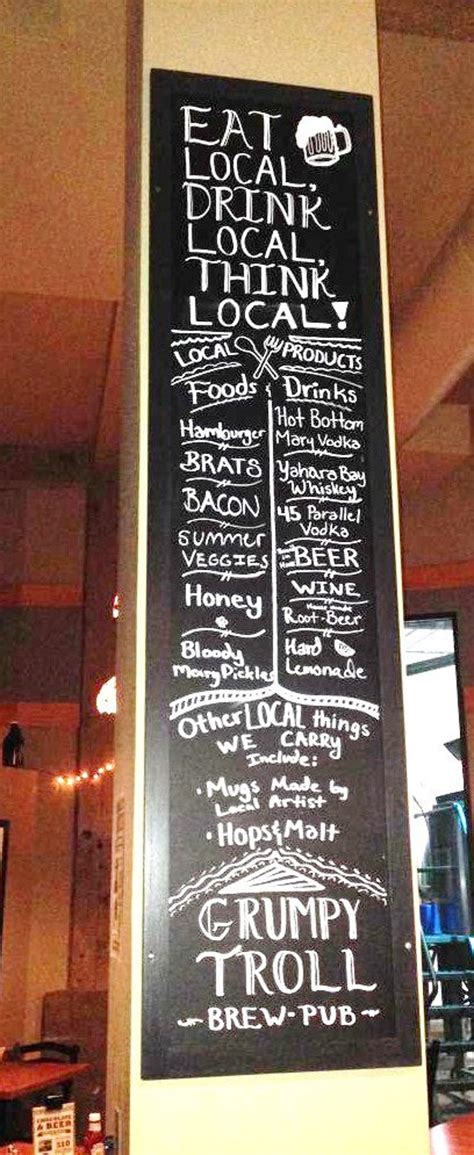 EAT
LOCAL,
DRINK
LOCAL,
THINK
LOCAL!
LOCAL PRODUCTS
Foods & Drinks
Hamburger
BRATS
BACON
SUMMER
VEGGIES
Honey
Bloody
Mary Pickles
Hot Bottom
Mary Vodka
Yahara Bay
Whiskey
45 Parallel
Vodka
BEER
WINE
House made
Root-Beer
Hard
Lemonade
Other LOCAL things
WE CARRY
Include:
• Mugs Made by
Local Artist
• Hops & Malt
GRUMPY
TROLL
~ BREW-PUB ~
CHOCOLATE
& BEER
$10